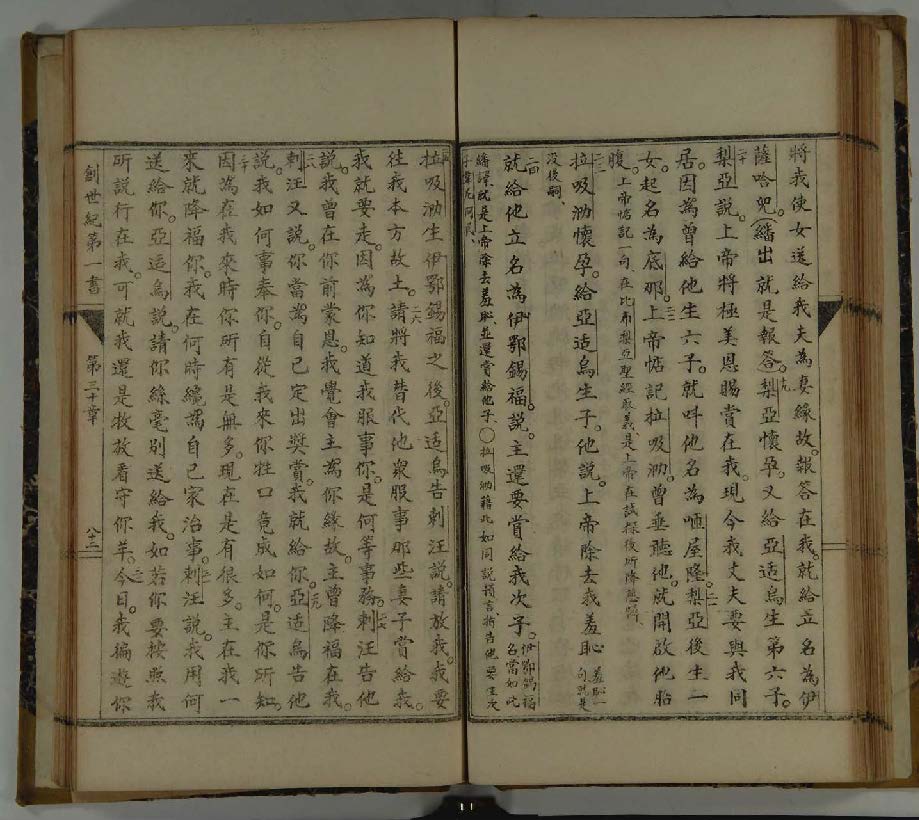 將我使女送給我夫為妻緣故。報答在我。就給立名為伊
薩哈兒。(繙出就是報答。十九梨亞懷孕。又給亞适烏生第六子。
二十梨亞說。上帝將極美恩賜賞在我。現今我丈夫要與我同
居。因為曾給他生六子。就呌他名為啞屋隆。二一梨亞後生一
女。起名為底那。二二上帝惦記拉吸泐。曾垂聽他。就開啟他胎
腹。上帝惦記一句、在比布梨亞聖經取義、是上帝在試探後所降恩
二三拉吸泐懷孕。給亞适烏生子。他說。上帝除去我羞恥羞恥一句就是
沒後嗣、
二四就給他立名為伊鄂錫福。說。主還要賞給我次子。伊鄂錫福名當如此
繙譯、就是上帝除去羞恥、並還賞給他子、〇拉吸泐藉此如同說預言、指告他要生次
子
二五拉吸泐生伊鄂錫福之後。亞适烏告剌汪說。請放我。我要
往我本方故土。二六請將我替代他眾服事那些妻子賞給我。
我就要走。因為你知道我服事你。是何等事務。二七剌汪告他
說。我曾在你前蒙恩。我覺會主為你緣故。主曾降福在我。
二八剌汪又說。你當為自己定出奬賞。我就給你。二九亞适烏告他
說。我如何事奉你。自從我來你牲口竟成如何。是你所知。
三十因為在我來時你所有是無多。現在是有很多。主在我一
來就降福你。我在何時纔為自己家治事。三一剌汪說。我用何
送給你。亞适烏說。請你絲毫別送給我。如若你要按照我
所說行在我。可就我還是牧放看守你羊。三二今日。我徧遊你
創世紀第一書
第三十章
八十二